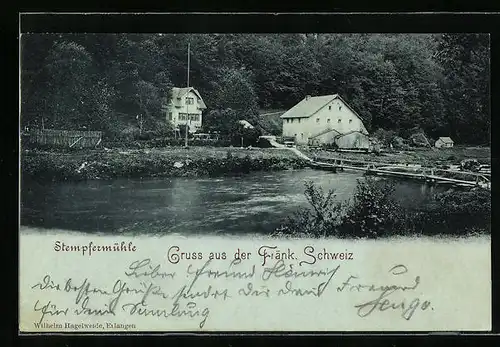 Stempfermühle
Gruss aus der Fränk. Schweiz
Lieber Freund
Die besten Grüsse sendet Dir Dein Freund
für Deine Samlung
Wilhelm Hagelweide, Erlangen